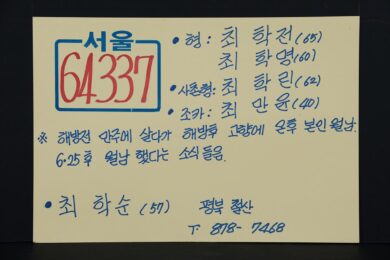 서울
64337
• 형: 최학전 (65)
최학영 (60)
• 사촌형: 최학린 (62)
• 조카: 최만윤 (40)
※ 해방전 만주에 살다가 해방후 고향에 온후 본인 월남.
6.25후 월남 했다는 소식 들음.
• 최학순 (57) 평북 철산
T. 878-7468